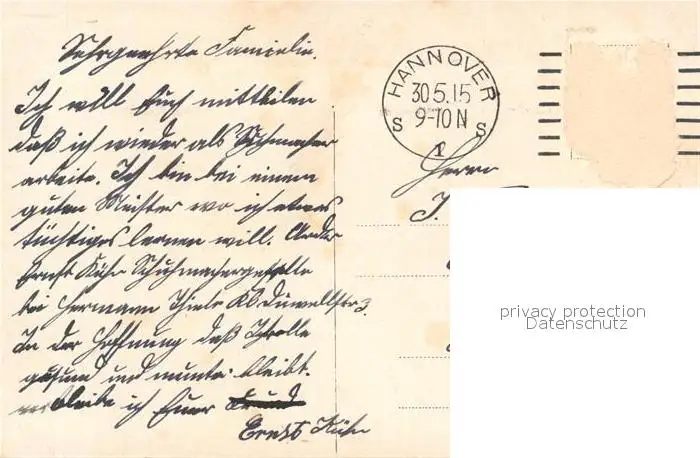 Sehrgeehrte Familie.
Ich will Euch mitteilen
daß ich wieder als Schumacher
arbeite. Ich bin bei einem
guten Meister wo ich etwas
tüchtiges lernen will.
Ernst Kühn Schuhmachergeselle
bei Hermann Thiele Kl. Düwellstr 3.
In der Hoffnung daß Ihr alle
gesund und munter bleibt.
verbleibe ich Euer
Ernst Kühn
HANNOVER
30.5.15
9-10 N
S S
1
Herrn
J.
privacy protection
Datenschutz